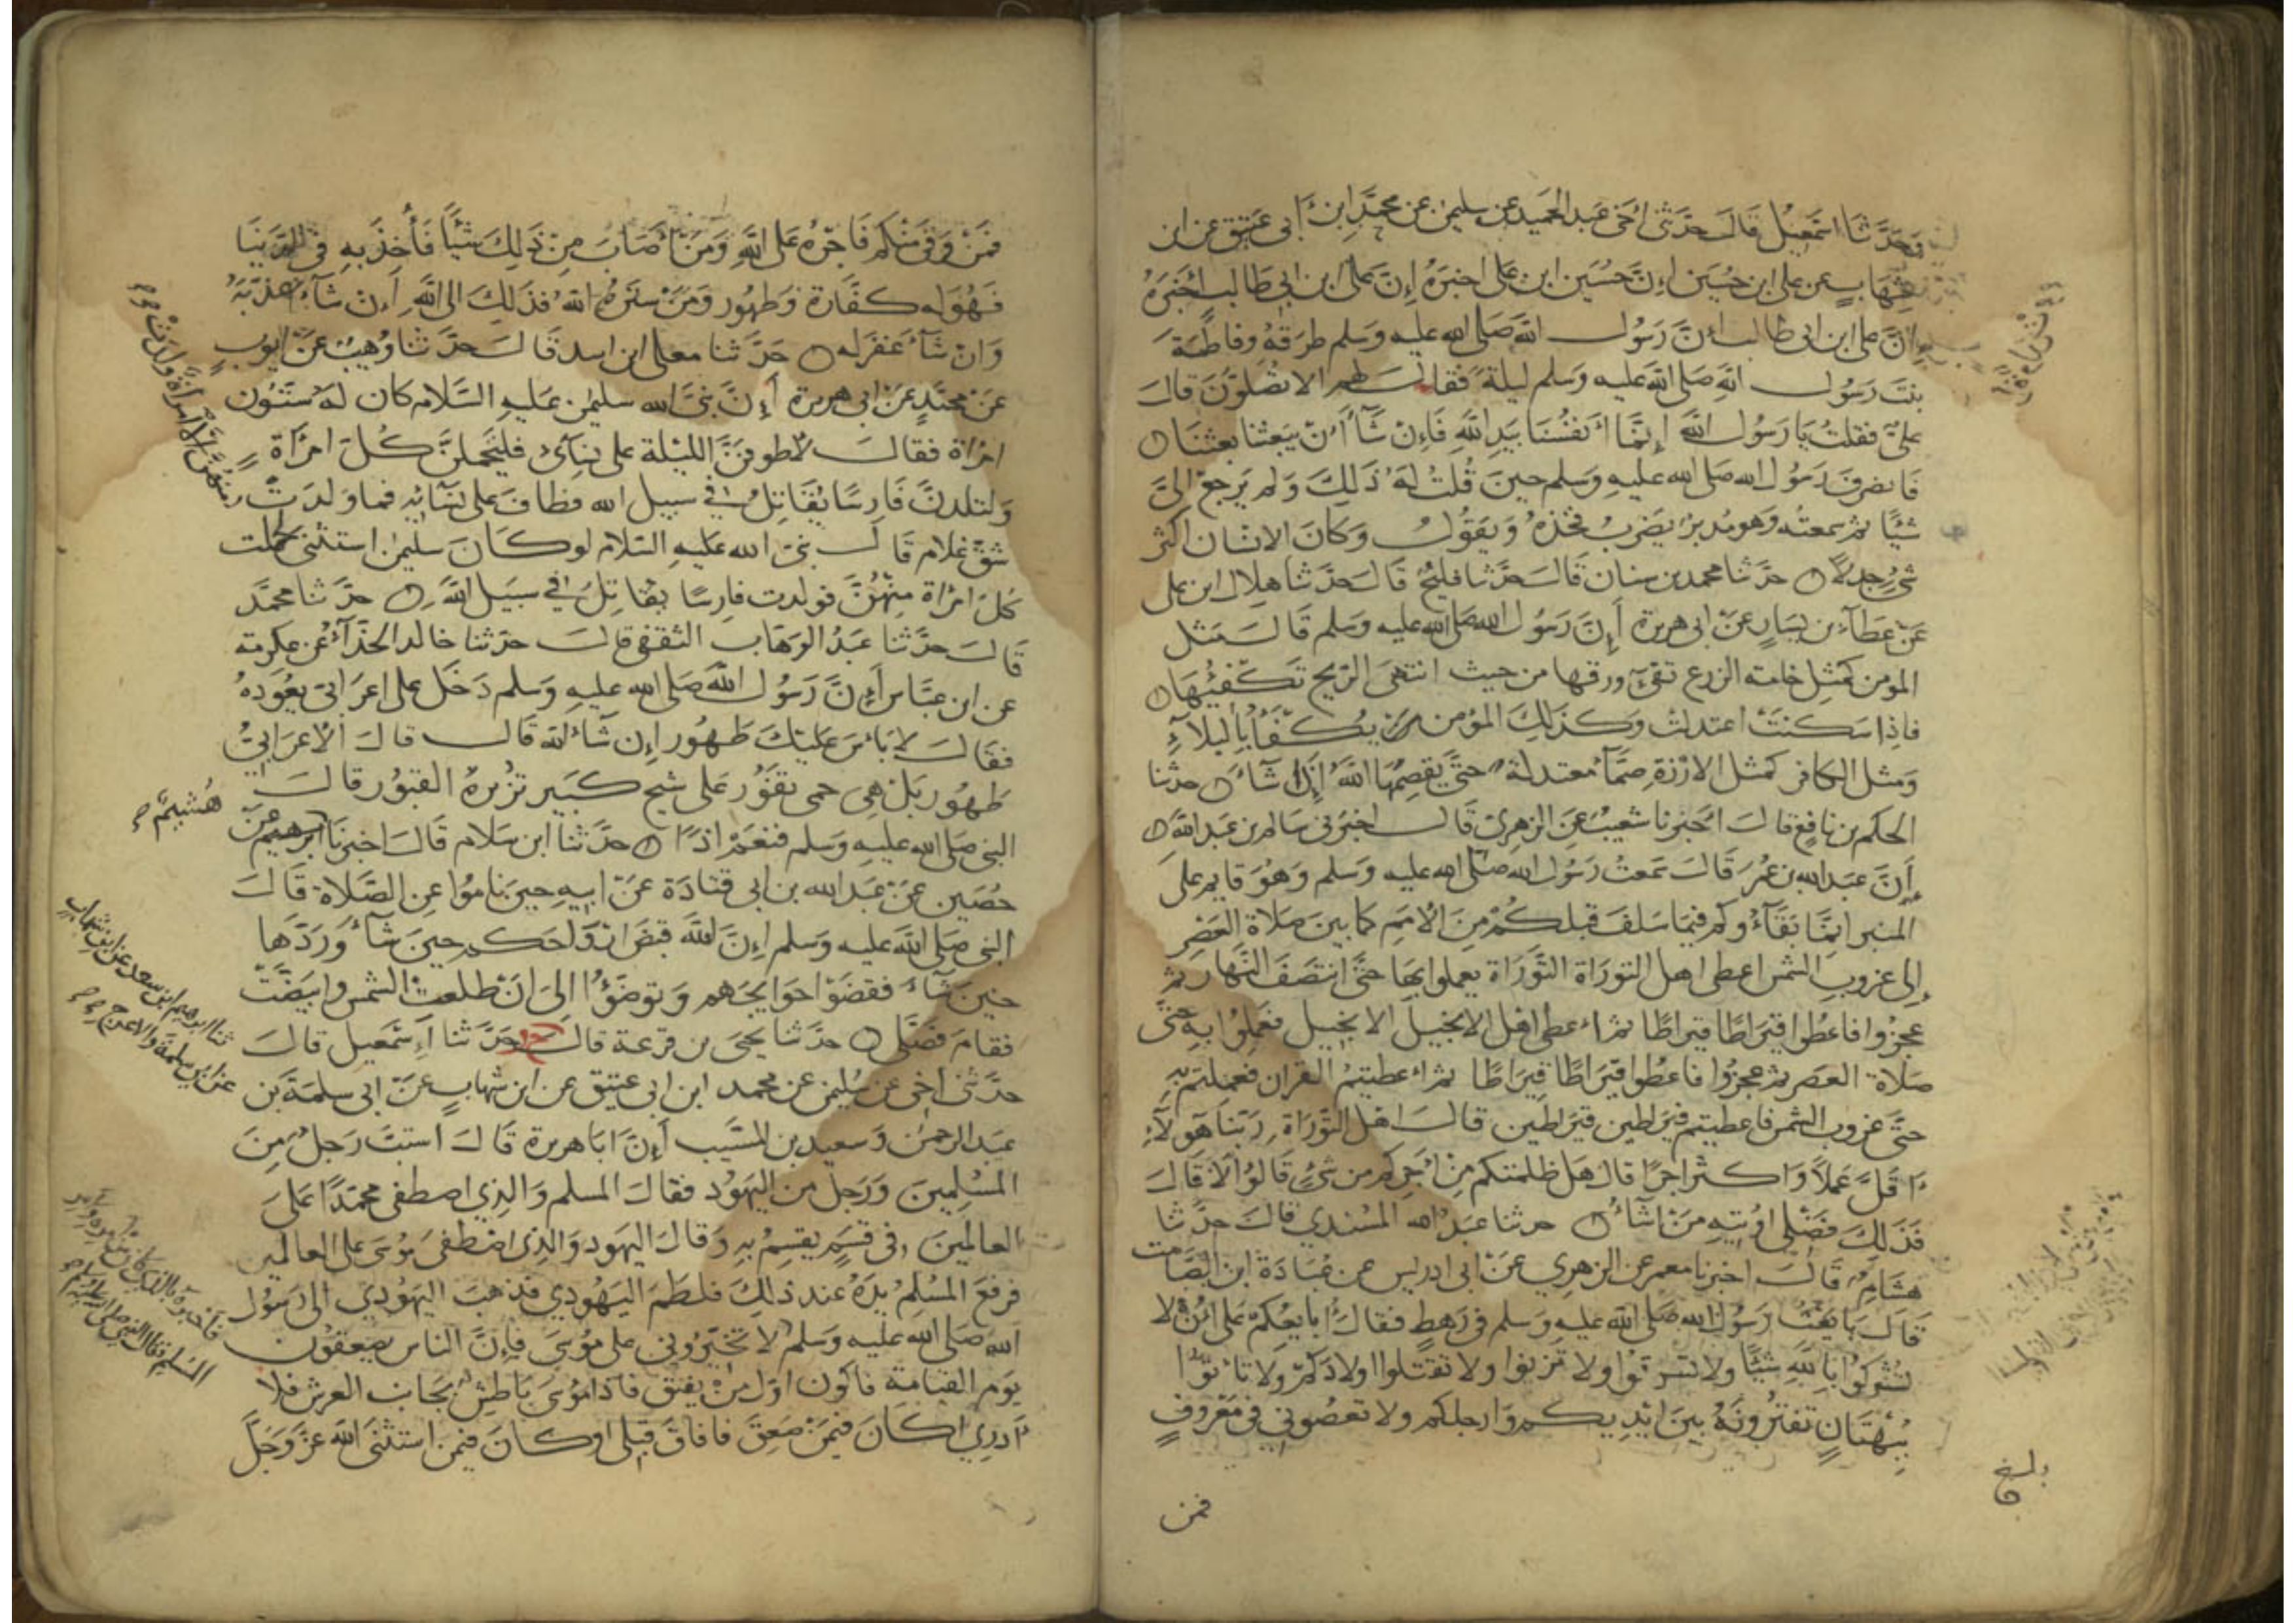 وحدثنا اسمعيل قال حدثني اخي عبد الحميد عن سليمن عن محمد ابن ابي عتيق عن ابن
شهاب عن علي ابن حسين ان حسين ابن علي اخبره ان علي ابن ابي طالب اخبره
ان علي ابن ابي طالب ان رسول الله صلى الله عليه وسلم طرقه وفاطمة
بنت رسول الله صلى الله عليه وسلم ليلة فقال لهم الا تصلون قال
علي فقلت يا رسول الله انما انفسنا بيد الله فان شا ان يبعثنا بعثنا
فانصرف رسول الله صلى الله عليه وسلم حين قلت له ذلك ولم يرجع الي
شيئا ثم سمعته وهو مدبر يضرب فخذه ويقول وكان الانسان اكثر
شيء جدلا حدثنا محمد بن سنان قال حدثنا فليح قال حدثنا هلال ابن علي
عن عطاء بن يسار عن ابي هريرة ان رسول الله صلى الله عليه وسلم قال مثل
المومن كمثل خامة الزرع تفيء ورقها من حيث انتهى الريح تكفيها
فاذا سكنت اعتدلت وكذلك المؤمن يكفأ بالبلاء
ومثل الكافر كمثل الارزة صماء معتدلة حتى يقصمها الله اذا شاء حدثنا
الحكم بن نافع قال اخبرنا شعيب عن الزهري قال اخبرني سالم بن عبد الله
ان عبد الله بن عمر قال سمعت رسول الله صلى الله عليه وسلم وهو قايم على
المنبر انما بقاؤكم فيما سلف قبلكم من الامم كما بين صلاة العصر
الى غروب الشمس اعطي اهل التوراة التوراة يعملوا بها حتى انتصف النهار ثم
عجزوا فاعطوا قيراطا قيراطا ثم اعطي اهل الانجيل الانجيل فعملوا به حتى
صلاة العصر ثم عجزوا فاعطوا قيراطا قيراطا ثم اعطيتم القران فعملتم به
حتى غروب الشمس فاعطيتم قيراطين قيراطين قال اهل التوراة ربنا هولاء
اقل عملا واكثر اجرا قال هل ظلمتكم من اجركم من شيء قالوا لا قال
فذلك فضلي اوتيه من اشاء حدثنا عبد الله المسندي قال حدثنا
هشام قال اخبرنا معمر عن الزهري عن ابي ادريس عن عبادة ابن الصامت
قال بايعت رسول الله صلى الله عليه وسلم في رهط فقال ابايعكم على ان لا
تشركوا بالله شيئا ولا تسرقوا ولا تزنوا ولا تقتلوا اولادكم ولا تاتوا
ببهتان تفترونه بين ايديكم وارجلكم ولا تعصوني في معروف
فمن
بلغ
فمن وفى منكم فاجره على الله ومن اصاب من ذلك شيئا فأخذ به في الدنيا
فهو له كفارة وطهور ومن ستره الله فذلك الى الله ان شاء عذبه
وان شاء غفر له حدثنا معلى ابن اسد قال حدثنا وهيب عن ايوب
عن محمد عن ابي هريرة ان نبي الله سليمن عليه السلام كان له ستون
امراة فقال لاطوفن الليلة على نسائي فليحملن كل امراة
ولتلدن فارسا يقاتل في سبيل الله فطاف على نسائه فما ولدت
منهن الا امرأة ولدت
شق غلام قال نبي الله عليه السلام لو كان سليمن استثنى لحملت
كل امراة منهن فولدت فارسا يقاتل في سبيل الله حدثنا محمد
قال حدثنا عبد الوهاب الثقفي قال حدثنا خالد الحذاء عن عكرمة
عن ابن عباس ان رسول الله صلى الله عليه وسلم دخل على اعرابي يعوده
فقال لا بأس عليك طهور ان شاء الله قال قال الاعرابي
طهور بل هي حمى تفور على شيخ كبير تزيره القبور قال
النبي صلى الله عليه وسلم فنعم اذا حدثنا ابن سلام قال اخبرنا ابرهيم عن
هشيم
حصين عن عبد الله بن ابي قتادة عن ابيه حين ناموا عن الصلاة قال
النبي صلى الله عليه وسلم ان الله قبض ارواحكم حين شاء وردها
حين شاء فقضوا حوايجهم وتوضؤا الى ان طلعت الشمس وابيضت
فقام فصلى حدثنا يحيى بن قزعة قال حدثنا اسمعيل قال
ثنا ابرهيم ابن سعد عن ابن شهاب
عن ابي سلمة والاعرج
حدثني اخي عن سليمن عن محمد ابن ابي عتيق عن ابن شهاب عن ابي سلمة بن
عبد الرحمن وسعيد بن المسيب ان ابا هريرة قال استب رجل من
المسلمين ورجل من اليهود فقال المسلم والذي اصطفى محمدا على
العالمين في قسم يقسم به وقال اليهود والذي اصطفى موسى على العالمين
فرفع المسلم يده عند ذلك فلطم اليهودي فذهب اليهودي الى رسول
فأخبره بالذي كان من امره وامر
المسلم فقال النبي صلى الله عليه وسلم
الله صلى الله عليه وسلم لا تخيروني على موسى فان الناس يصعقون
يوم القيامة فاكون اول من يفيق فاذا موسى باطش بجانب العرش فلا
ادري اكان فيمن صعق فافاق قبلي او كان فيمن استثنى الله عز وجل